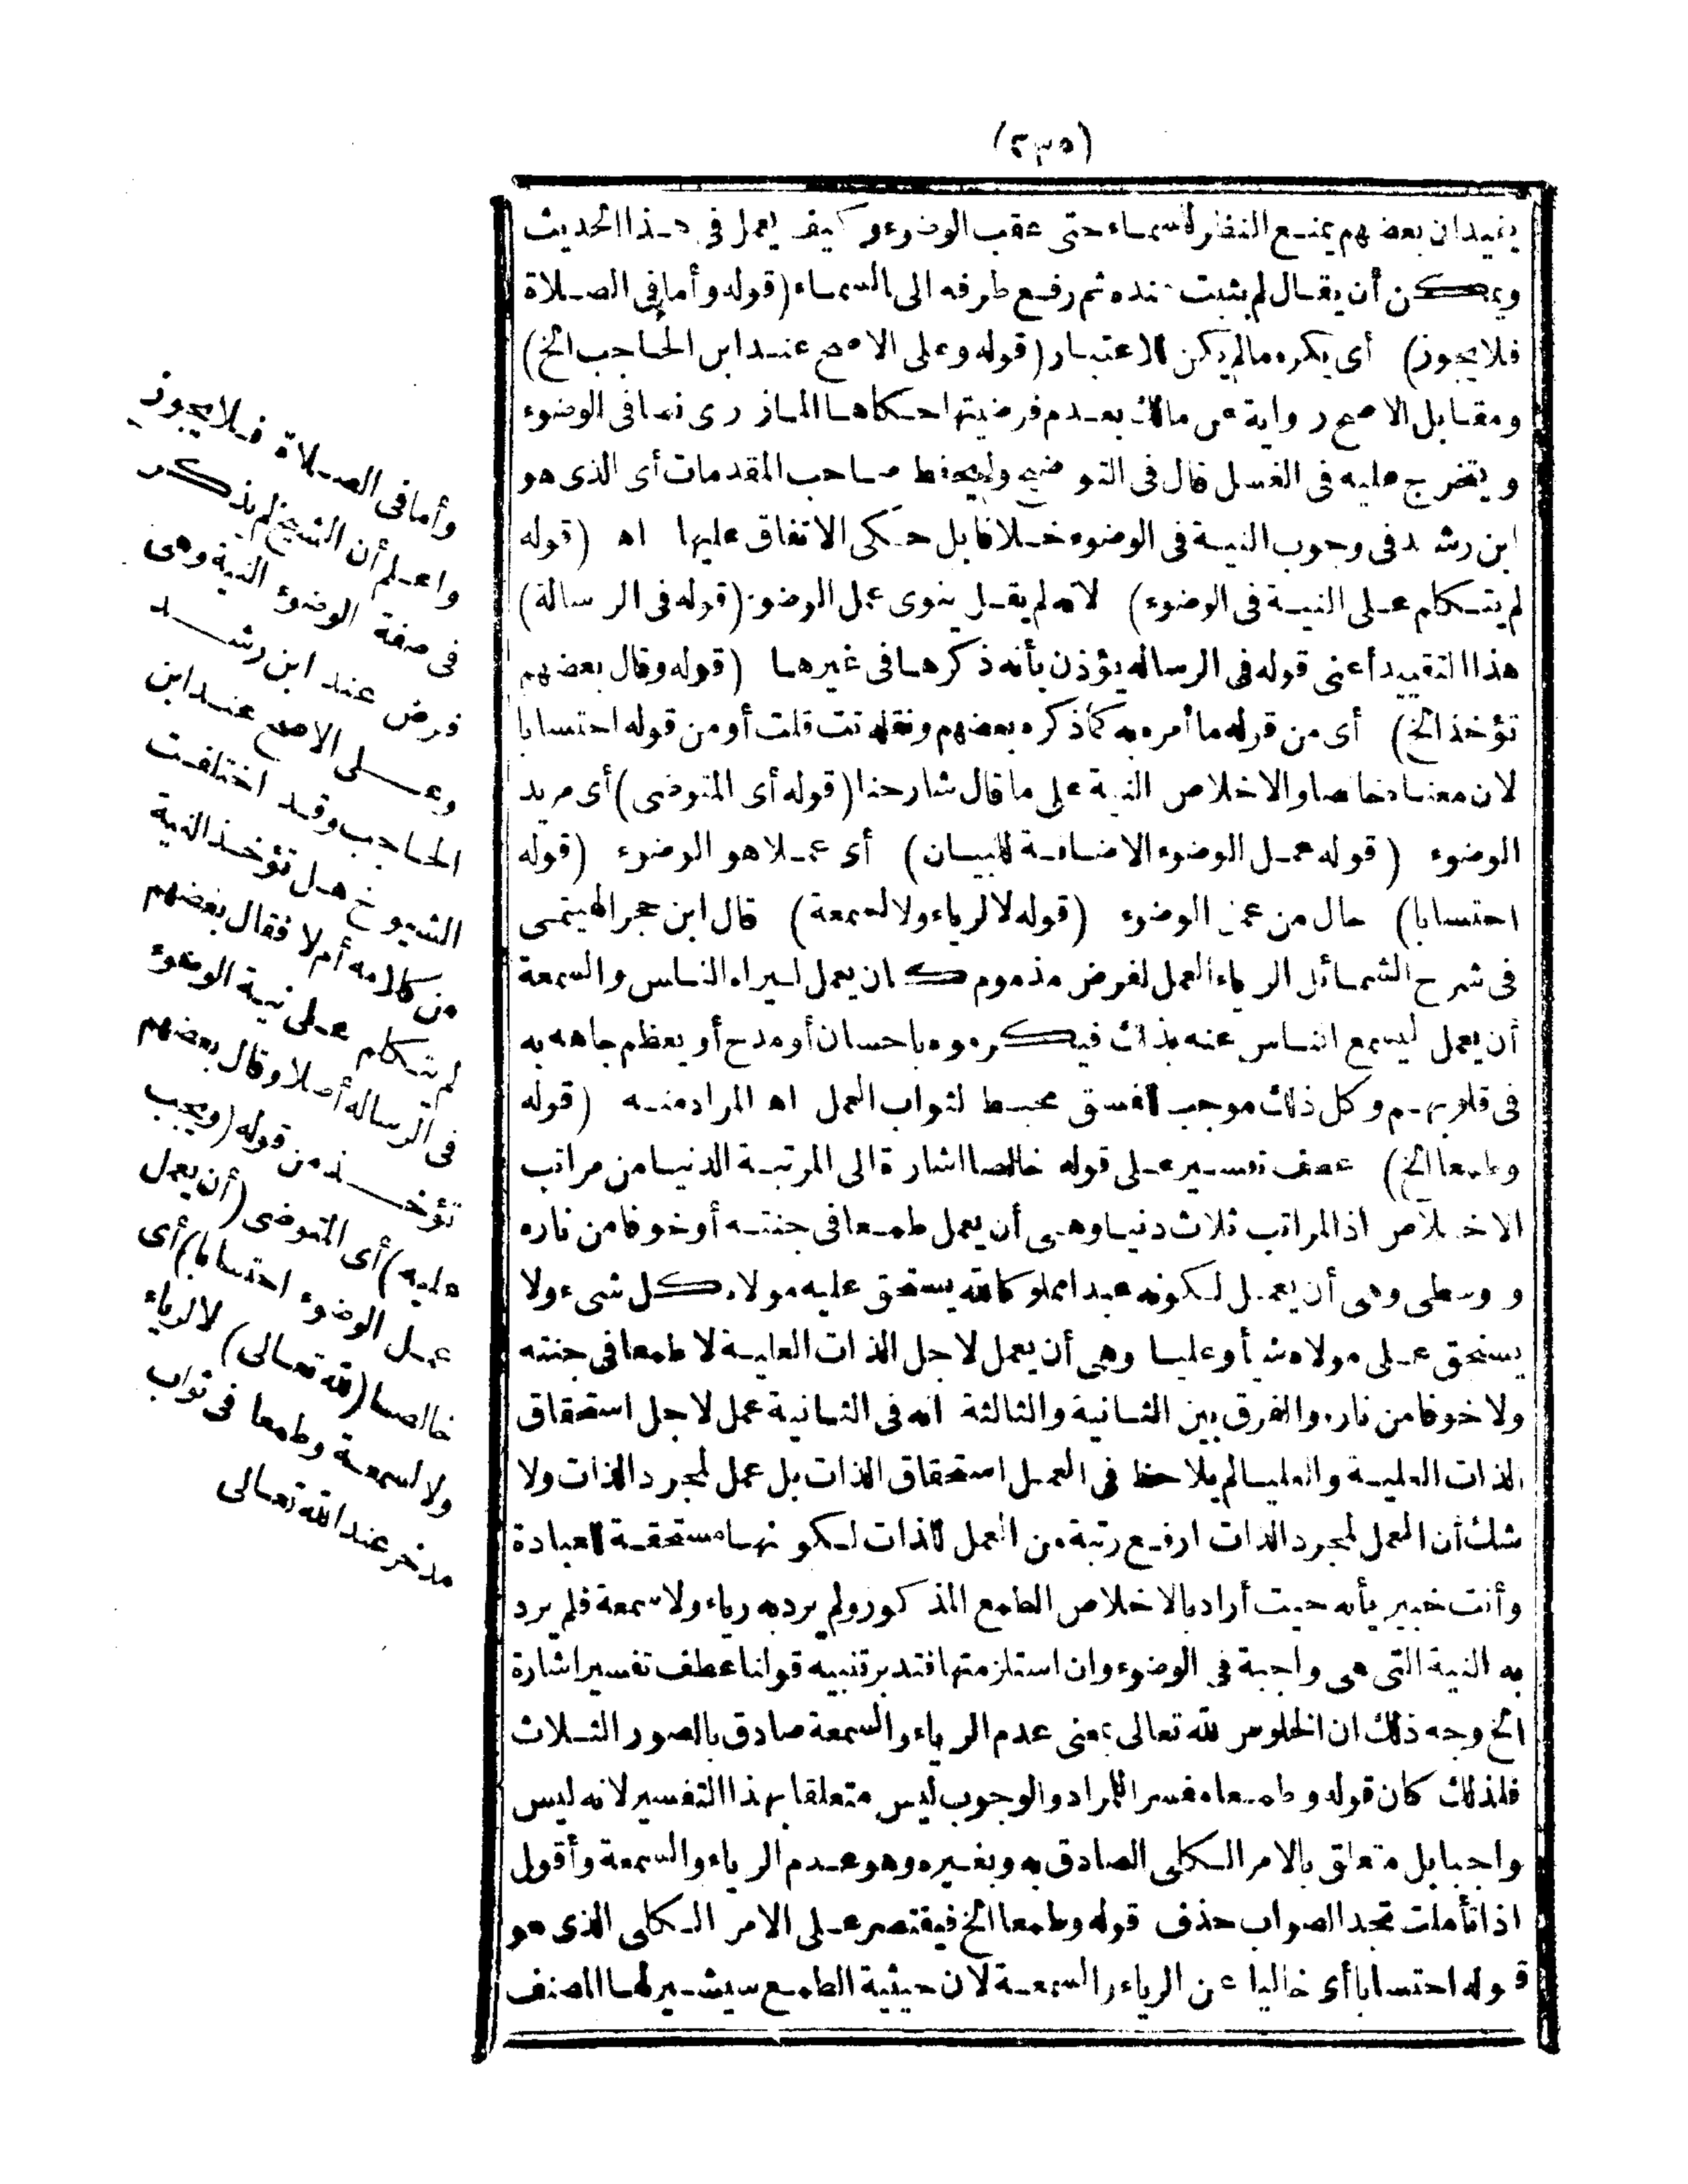 (٢٣٥)
يفيد ان بعضهم يمنع النظر للسماء حتى عقب الوضوء وكيف يعمل فى هذا الحديث
ويمكن أن يقال لم يثبت عنده ثم رفع طرفه الى السماء (قوله وأما فى الصلاة
فلا يجوز) أى يكره مالم يكن للاعتبار (قوله وعلى الاصح عند ابن الحاجب الخ)
ومقابل الاصح رواية عن مالك بعدم فرضيتها حكاها المازرى نصا فى الوضوء
ويتخرج عليه فى الغسل قال فى التوضيح ولم يحفظ صاحب المقدمات أى الذى هو
ابن رشد فى وجوب النية فى الوضوء خلافا بل حكى الاتفاق عليها اه (قوله
لم يتكلم على النية فى الوضوء) لانه لم يقل ينوى عمل الوضوء (قوله فى الرسالة)
هذا التقييد أعنى قوله فى الرسالة يؤذن بأنه ذكرها فى غيرها (قوله وقال بعضهم
تؤخذ الخ) أى من قوله ما أمره به كما ذكره بعضهم ونقله تت قلت أو من قوله احتسابا
لان معناه خالصا والاخلاص النية على ما قال شارحنا (قوله أى المتوضى) أى مريد
الوضوء (قوله عمل الوضوء الاضافة للبيان) أى عملا هو الوضوء (قوله
احتسابا) حال من عمل الوضوء (قوله لا لرياء ولا لسمعة) قال ابن حجر الهيتمى
فى شرح الشمائل الرياء العمل لغرض مذموم كان يعمل ليراه الناس والسمعة
أن يعمل ليسمع الناس عنه بذلك فيكرموه باحسان أو مدح أو يعظم جاهه به
فى قلوبهم وكل ذلك موجب للفسق محبط لثواب العمل اه المراد منه (قوله
وطمعا الخ) عطف تفسير على قوله خالصا اشارة الى المرتبة الدنيا من مراتب
الاخلاص اذ المراتب ثلاث دنيا وهى أن يعمل طمعا فى جنته أو خوفا من ناره
ووسطى وهى أن يعمل لكونه عبدا مملوكا لله يستحق عليه مولاه كل شىء ولا
يستحق على مولاه شيأ وعليا وهى أن يعمل لاجل الذات العلية لا طمعا فى جنته
ولا خوفا من ناره والفرق بين الثانية والثالثة انه فى الثانية عمل لاجل استحقاق
الذات العلية والعليا لم يلاحظ فى العمل استحقاق الذات بل عمل لمجرد الذات ولا
شك أن العمل لمجرد الذات ارفع رتبة من العمل للذات لكونها مستحقة للعبادة
وأنت خبير بأنه حيث أراد بالاخلاص الطمع المذكور ولم يرد به رياء ولا سمعة فلم يرد
به النية التى هى واجبة فى الوضوء وان استلزمتها فتدبر تنبيه قولنا عطف تفسير اشارة
الخ وجه ذلك ان الخلوص لله تعالى بمعنى عدم الرياء والسمعة صادق بالصور الثلاث
فلذلك كان قوله وطمعا مفسرا للمراد والوجوب ليس متعلقا بهذا التفسير لانه ليس
واجبا بل متعلق بالامر الكلى الصادق به وبغيره وهو عدم الرياء والسمعة وأقول
اذا تأملت تجد الصواب حذف قوله وطمعا الخ فيقتصر على الامر الكلى الذى هو
قوله احتسابا أى خاليا عن الرياء والسمعة لان حيثية الطمع سيشير لها المصنف
وأما فى الصلاة فلا يجوز
واعلم أن الشيخ لم يذكر
فى صفة الوضوء النية وهى
فرض عند ابن رشد
وعلى الاصح عند ابن
الحاجب وقد اختلفت
الشيوخ هل تؤخذ النية
من كلامه أم لا فقال بعضهم
لم يتكلم على نية الوضوء
فى الرسالة أصلا وقال بعضهم
تؤخذ من قوله (ويجب
عليه) أى المتوضى (أن يعمل
عمل الوضوء احتسابا) أى
خالصا (لله تعالى) لا لرياء
ولا لسمعة وطمعا فى ثواب
مدخر عند الله تعالى